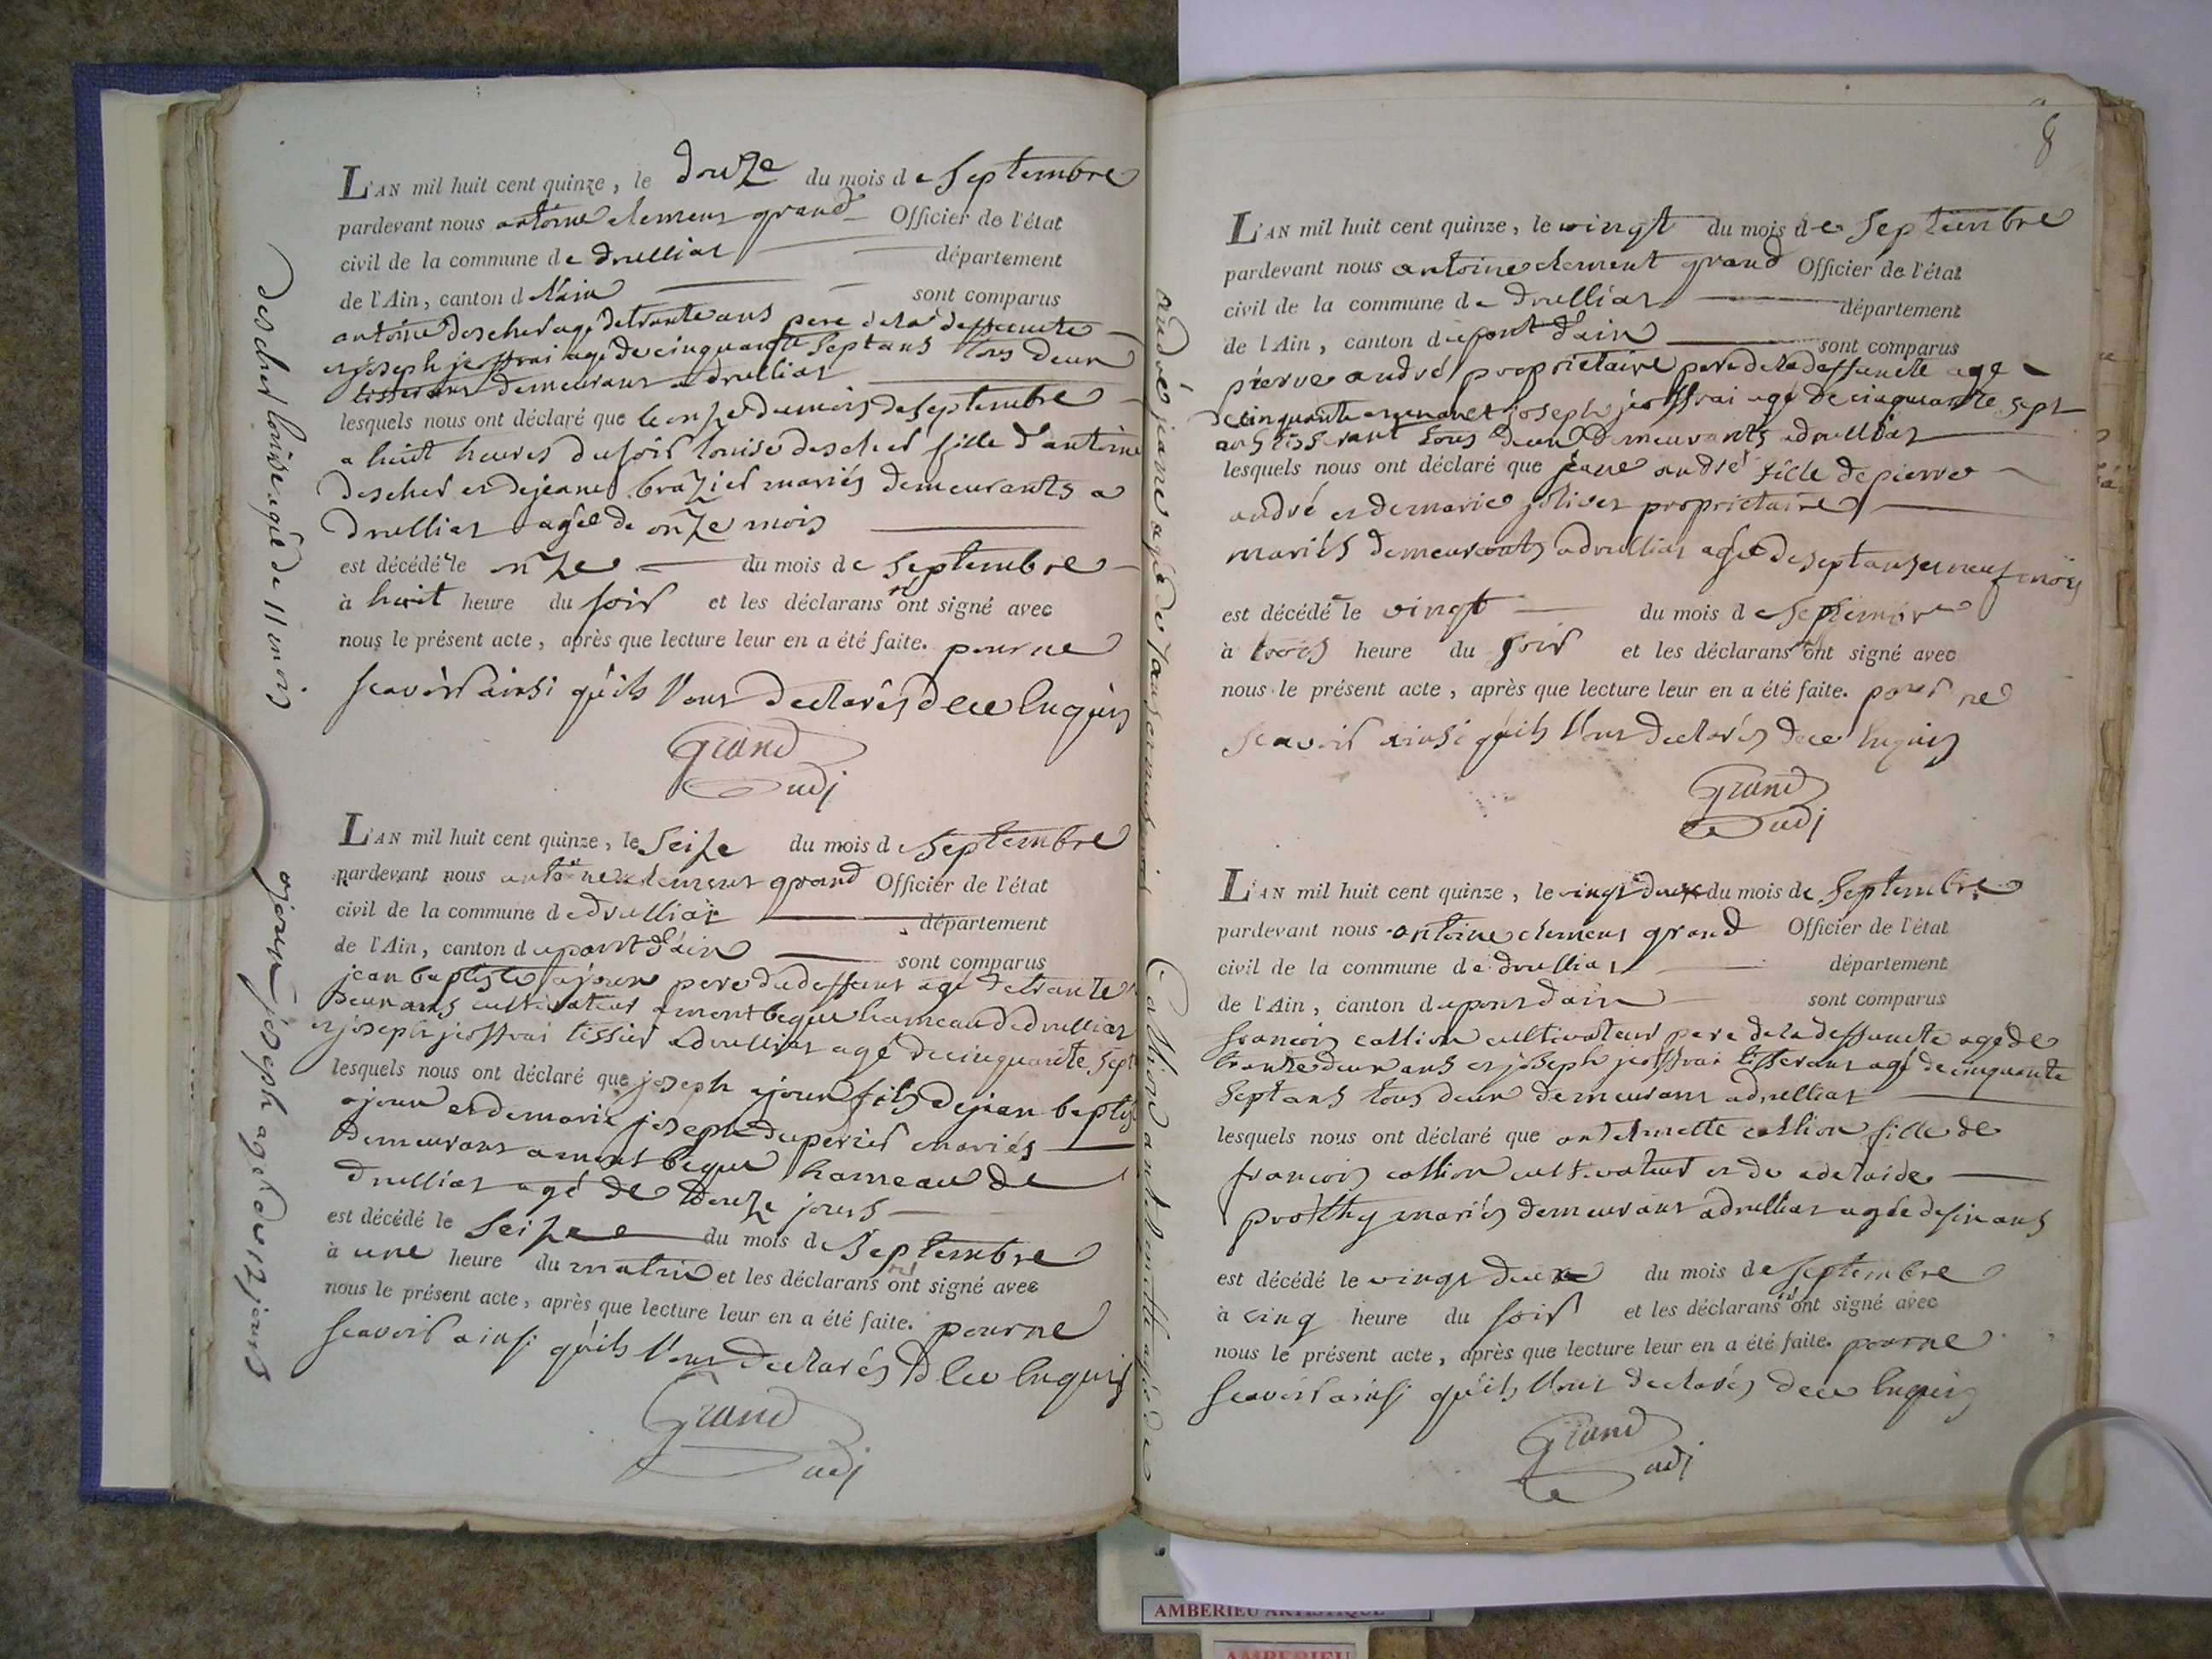 descher louise agée de 11 mois
L'AN mil huit cent quinze, le douze du mois de septembre
pardevant nous antoine clement grand Officier de l'état
civil de la commune de druilliat département
de l'Ain, canton d l'ain sont comparus
antoine descher agé de trante ans pere de la deffuncte
et joseph jeoffrai agé de cinquante sept ans tous deux
tisserans demeurans a druilliat
lesquels nous ont déclaré que le onze du mois de septembre
a huit heures du soir louise descher fille d'antoine
descher et de jeane brazier mariés demeurants a
druilliat agée de onze mois
est décédé le onze du mois de septembre
à huit heure du soir et les déclarans ont signé avec
nous le présent acte, après que lecture leur en a été faite. pour ne
scavoir ainsi qu'ils l'ont declarés de ce enquis
Grand
adj
ajoux joseph agé de 12 jours
L'AN mil huit cent quinze, le seize du mois de septembre
pardevant nous antoine clement grand Officier de l'état
civil de la commune de druilliat département
de l'Ain, canton du pont d'ain sont comparus
jean baptiste ajoux pere du deffunt agé de trante
deux ans cultivateur a mont begue hameau de druilliat
et joseph jeoffrai tissier a druilliat agé de cinquante sept
lesquels nous ont déclaré que joseph ajoux fils de jean baptiste
ajoux et de marie joseph duperier mariés
demeurans a mont begue hameau de
druilliat agé de douze jours
est décédé le seize du mois de septembre
à une heure du matin et les déclarans ont signé avec
nous le présent acte, après que lecture leur en a été faite. pour ne
scavoir ainsi qu'ils l'ont declarés de ce enquis
Grand
adj
8
andré jeanne agée de 7 ans et neuf mois
L'AN mil huit cent quinze, le vingt du mois de septembre
pardevant nous antoine clement grand Officier de l'état
civil de la commune de druilliat département
de l'Ain, canton du pont d'ain sont comparus
pierre andré proprietaire pere de la deffuncte agé
de cinquante et joseph jeoffrai agé de cinquante sept
ans tisserant tous deux demeurants a druilliat
lesquels nous ont déclaré que jeane andré fille de pierre
andré et de marie jolivet proprietaire
mariés demeurants a druilliat agée de sept ans et neuf mois
est décédé le vingt du mois de septembre
à trois heure du soir et les déclarans ont signé avec
nous le présent acte, après que lecture leur en a été faite. pour ne
scavoir ainsi qu'ils l'ont declarés de ce enquis
Grand
adj
L'AN mil huit cent quinze, le vingt deux du mois de septembre
pardevant nous antoine clement grand Officier de l'état
civil de la commune de druilliat département
de l'Ain, canton du pont d'ain sont comparus
francois cattion cultivateur pere de la deffuncte agé de
trante deux ans et joseph jeoffrai tisserant agé de cinquante
sept ans tous deux demeurans a druilliat
lesquels nous ont déclaré que anthelmette cattion fille de
francois cattion cultivateur et de adelaide
prothy mariés demeurans a druilliat agée de six ans
est décédé le vingt deux du mois de septembre
à cinq heure du soir et les déclarans ont signé avec
nous le présent acte, après que lecture leur en a été faite. pour ne
scavoir ainsi qu'ils l'ont declarés de ce enquis
Grand
adj
AMBERIEU ARTISTIQUE
AMBERIEU